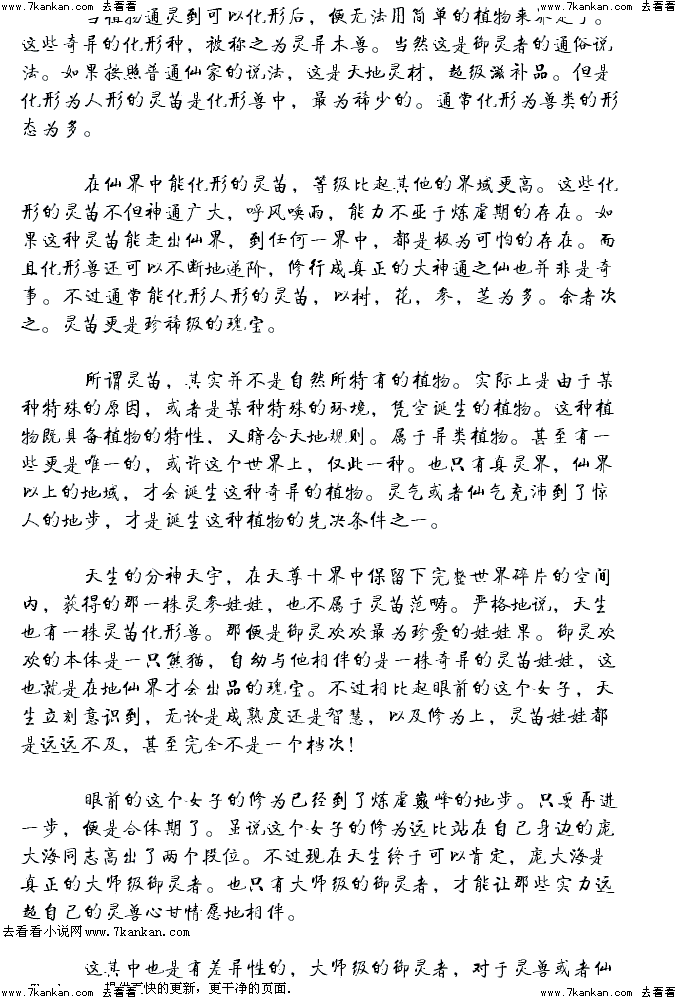 去看看 www.7kankan.com 去看看 www.7kankan.com 去看看 www.7kankan.com 去看看
当植物通灵到可以化形后，便无法用简单的植物来界定了。
这些奇异的化形种，被称之为灵异木兽。当然这是御灵者的通俗说
法。如果按照普通仙家的说法，这是天地灵材，超级滋补品。但是
化形为人形的灵苗是化形兽中，最为稀少的。通常化形为兽类的形
态为多。
在仙界中能化形的灵苗，等级比起其他的界域更高。这些化
形的灵苗不但神通广大，呼风唤雨，能力不亚于炼虚期的存在。如
果这种灵苗能走出仙界，到任何一界中，都是极为可怕的存在。而
且化形兽还可以不断地递阶，修行成真正的大神通之仙也并非是奇
事。不过通常能化形人形的灵苗，以树，花，参，芝为多。余者次
之。灵苗更是珍稀级的瑰宝。
所谓灵苗，其实并不是自然所特有的植物。实际上是由于某
种特殊的原因，或者是某种特殊的环境，凭空诞生的植物。这种植
物既具备植物的特性，又暗含天地规则。属于异类植物。甚至有一
些更是唯一的，或许这个世界上，仅此一种。也只有真灵界，仙界
以上的地域，才会诞生这种奇异的植物。灵气或者仙气充沛到了惊
人的地步，才是诞生这种植物的先决条件之一。
天生的分神天宇，在天尊十界中保留下完整世界碎片的空间
内，获得的那一株灵参娃娃，也不属于灵苗范畴。严格地说，天生
也有一株灵苗化形兽。那便是御灵欢欢最为珍爱的娃娃果。御灵欢
欢的本体是一只熊猫，自幼与他相伴的是一株奇异的灵苗娃娃，这
也就是在地仙界才会出品的瑰宝。不过相比起眼前的这个女子，天
生立刻意识到，无论是成熟度还是智慧，以及修为上，灵苗娃娃都
是远远不及，甚至完全不是一个档次！
眼前的这个女子的修为已经到了炼虚巅峰的地步。只要再进
一步，便是合体期了。虽说这个女子的修为远比站在自己身边的庞
大海同志高出了两个段位。不过现在天生终于可以肯定，庞大海是
真正的大师级御灵者。也只有大师级的御灵者，才能让那些实力远
超自己的灵兽心甘情愿地相伴。
去看看小说网www.7kankan.com
这其中也是有差异性的，大师级的御灵者，对于灵兽或者仙
提供更快的更新，更干净的页面.
去看看 www.7kankan.com 去看看 www.7kankan.com 去看看 www.7kankan.com 去看看